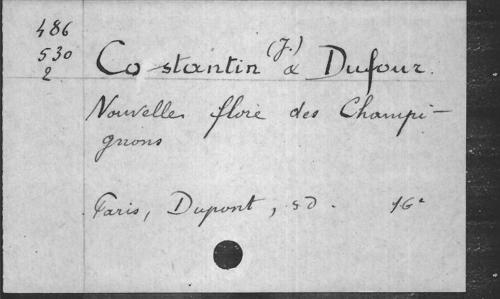 486
530
2
Co stantin (J.) & Dufour.
Nouvelles flore des Champi-
gnons
Paris, Dupont, sd. 16°